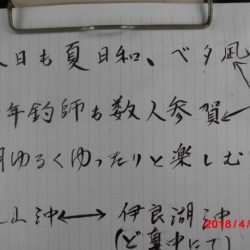 日も夏日和、ベタ風
年釣師も数人参賀
明ゆるくゆったりと楽しむ
山沖⟷伊良湖沖
(ど真中にて)
2018/4/